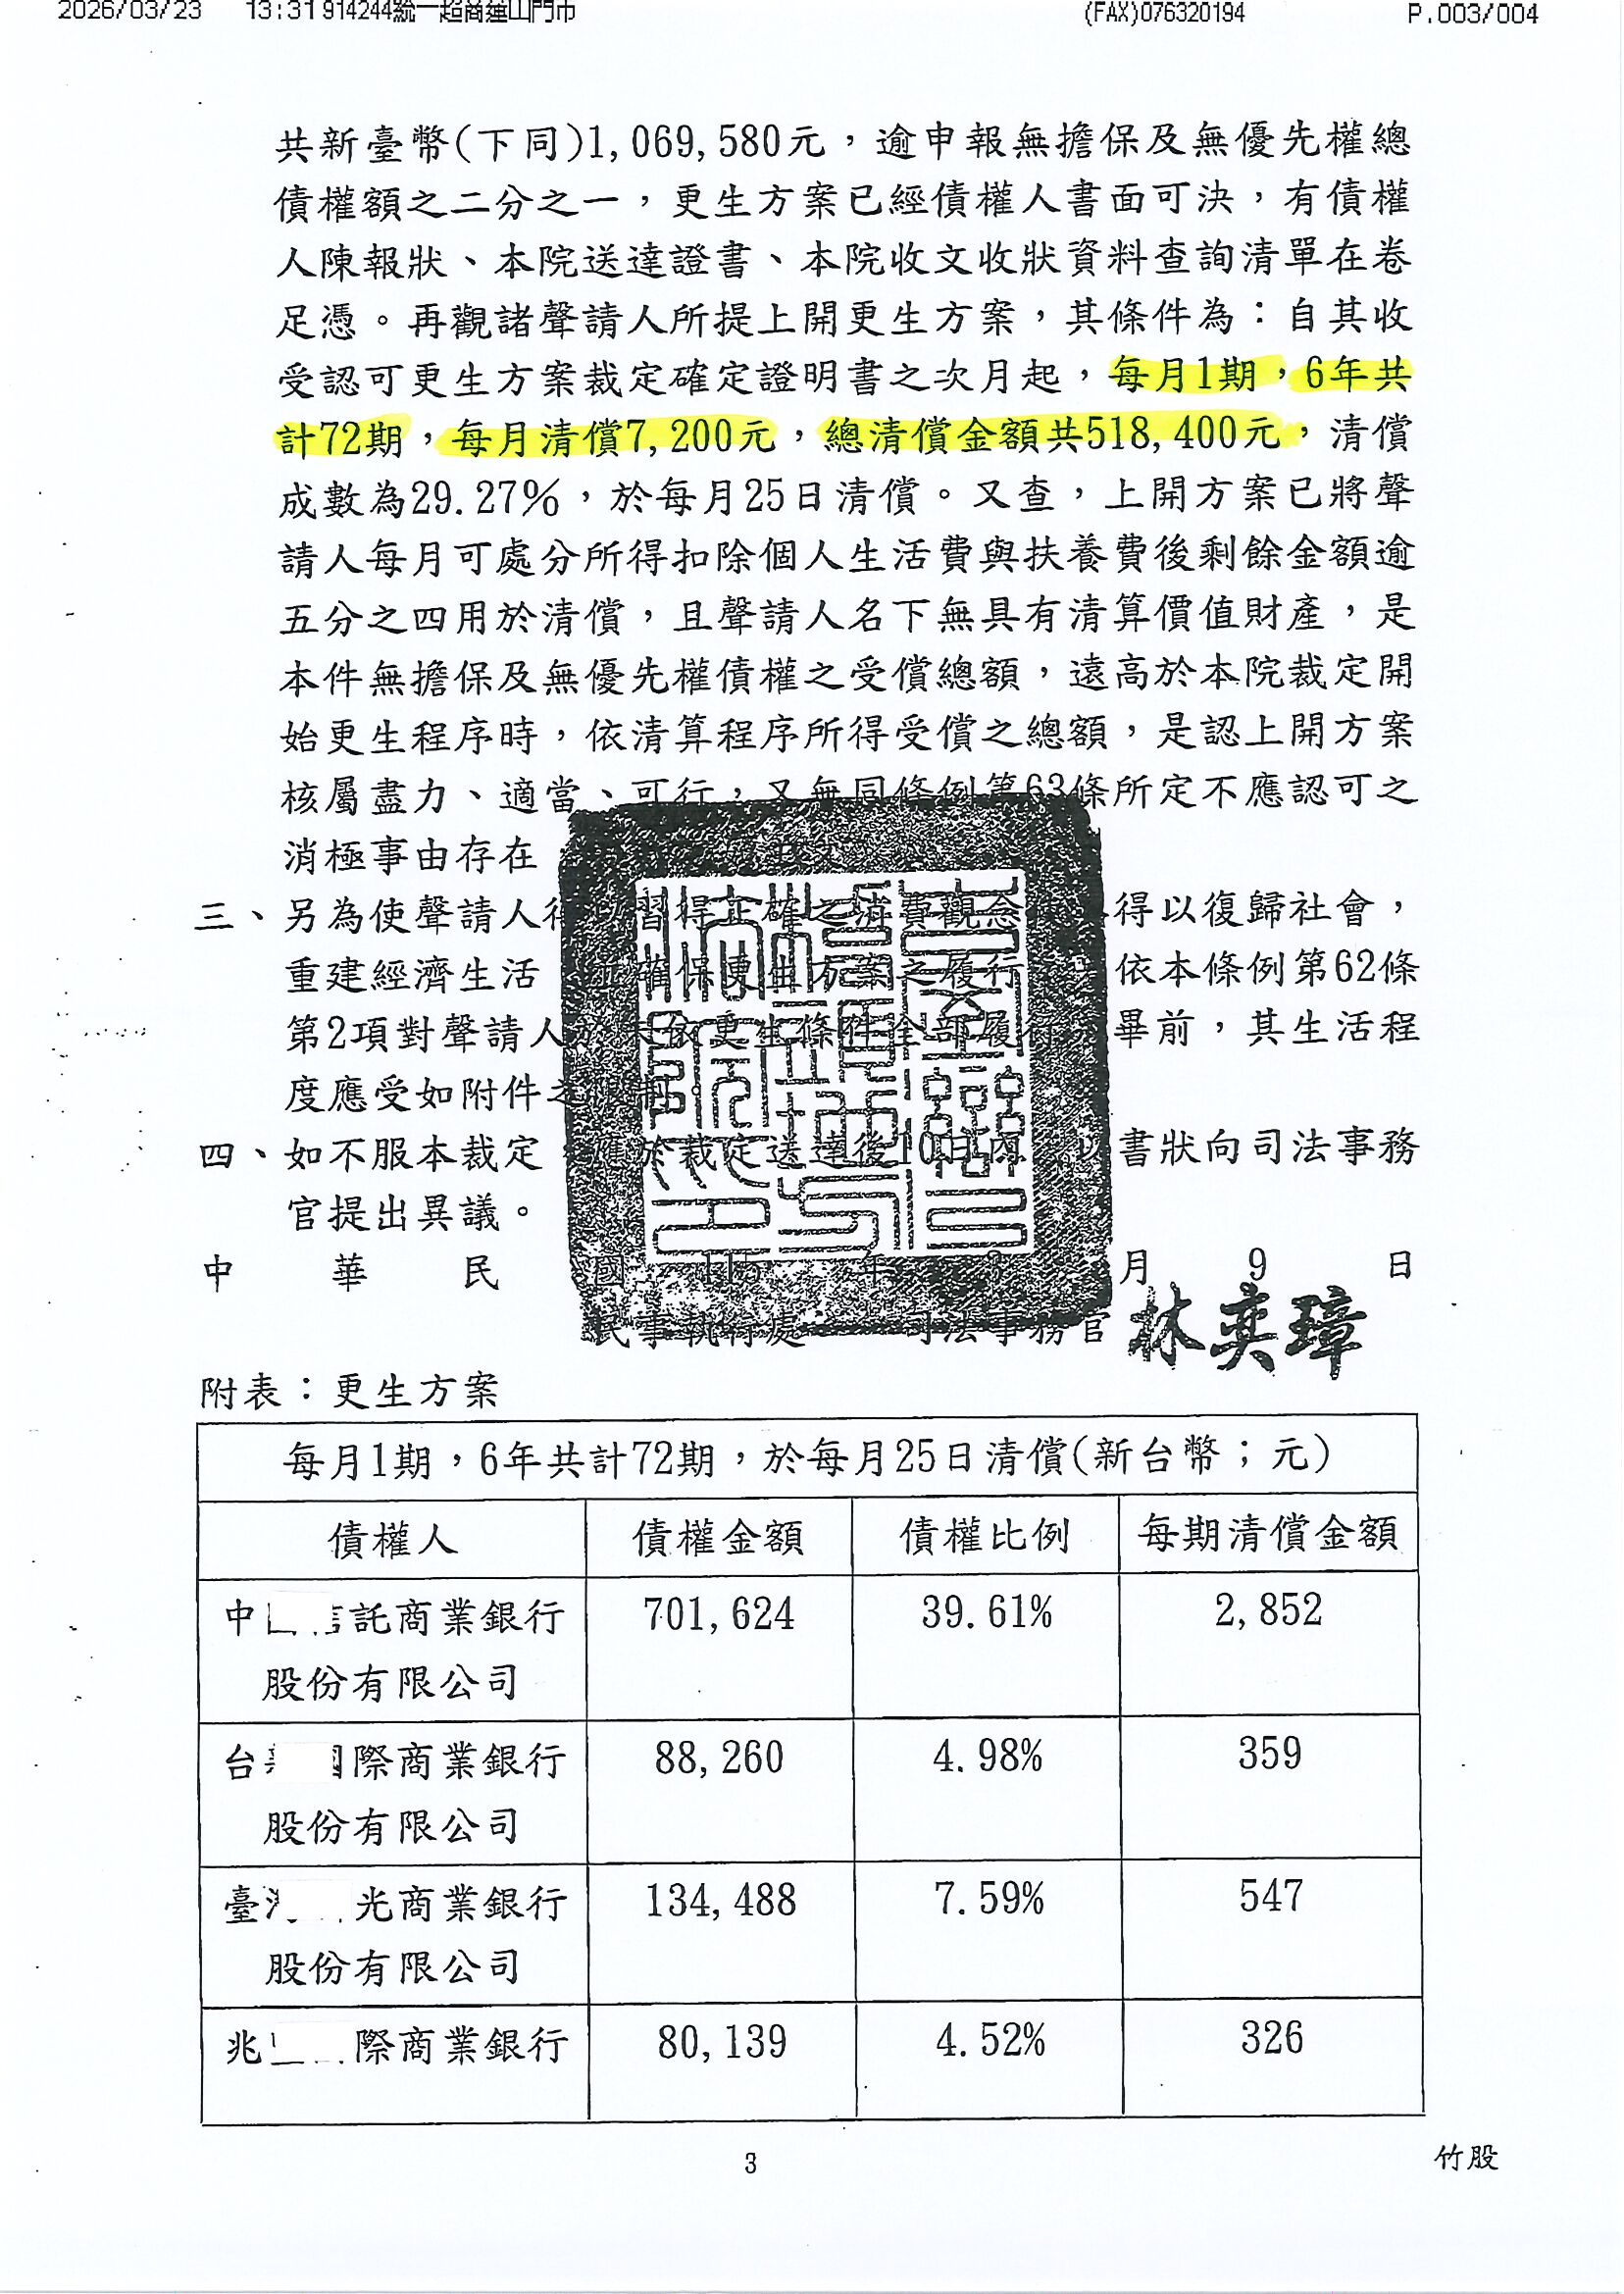 2026/03/23 13:31 914244統一超商蓮山門市 (FAX)076320194 P.003/004
共新臺幣(下同)1,069,580元，逾申報無擔保及無優先權總
債權額之二分之一，更生方案已經債權人書面可決，有債權
人陳報狀、本院送達證書、本院收文收狀資料查詢清單在卷
足憑。再觀諸聲請人所提上開更生方案，其條件為：自其收
受認可更生方案裁定確定證明書之次月起，每月1期，6年共
計72期，每月清償7,200元，總清償金額共518,400元，清償
成數為29.27%，於每月25日清償。又查，上開方案已將聲
請人每月可處分所得扣除個人生活費與扶養費後剩餘金額逾
五分之四用於清償，且聲請人名下無具有清算價值財產，是
本件無擔保及無優先權債權之受償總額，遠高於本院裁定開
始更生程序時，依清算程序所得受償之總額，是認上開方案
核屬盡力、適當、可行，又無同條例第63條所定不應認可之
消極事由存在
三、另為使聲請人得以習得正確之消費觀念 得以復歸社會，
重建經濟生活 並確保更生方案之履行 依本條例第62條
第2項對聲請人於未依更生條件全部履行完畢前，其生活程
度應受如附件之限制。
四、如不服本裁定 應於裁定送達後10日內 以書狀向司法事務
官提出異議。
中 華 民 國 115 年 月 9 日
民事執行處 司法事務官 林奕璋
附表：更生方案
每月1期，6年共計72期，於每月25日清償(新台幣；元)
債權人 債權金額 債權比例 每期清償金額
中 信託商業銀行 701,624 39.61% 2,852
股份有限公司
台 國際商業銀行 88,260 4.98% 359
股份有限公司
臺灣 光商業銀行 134,488 7.59% 547
股份有限公司
兆 際商業銀行 80,139 4.52% 326
3
竹股